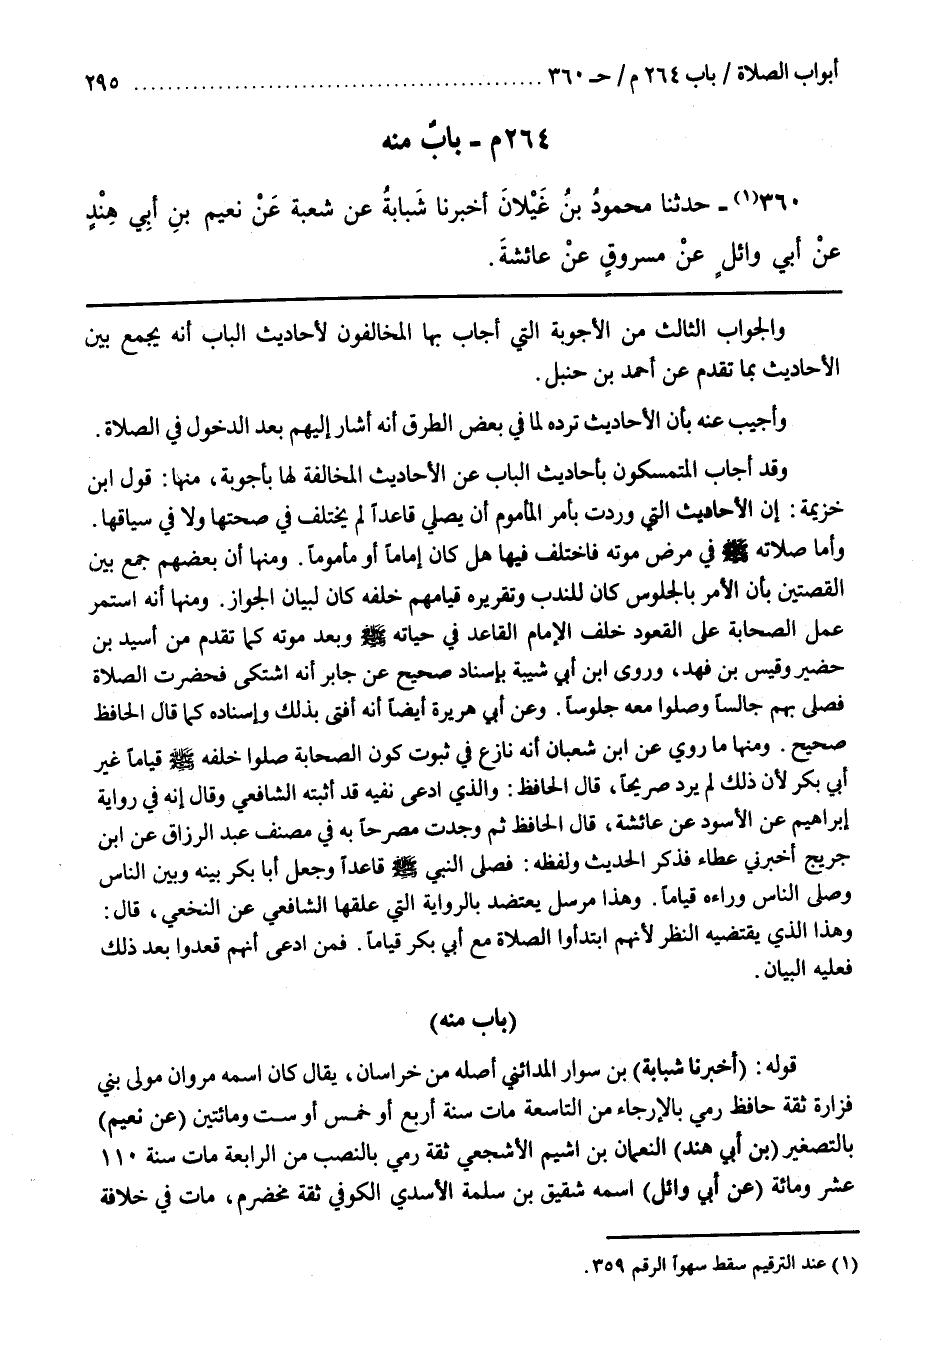 أبواب الصلاة / باب ٢٦٤ م/ حـ ٣٦٠ ................................................ ٢٩٥
٢٦٤م - بابٌ منه
٣٦٠(١) - حدثنا محمودُ بنُ غَيْلانَ أخبرنا شَبابةُ عن شعبة عَنْ نعيم بنِ أبِي هِنْدٍ
عنْ أبي وائلٍ عنْ مسروقٍ عنْ عائشةَ.
والجواب الثالث من الأجوبة التي أجاب بها المخالفون لأحاديث الباب أنه يجمع بين
الأحاديث بما تقدم عن أحمد بن حنبل.
وأجيب عنه بأن الأحاديث ترده لما في بعض الطرق أنه أشار إليهم بعد الدخول في الصلاة.
وقد أجاب المتمسكون بأحاديث الباب عن الأحاديث المخالفة لها بأجوبة، منها: قول ابن
خزيمة: إن الأحاديث التي وردت بأمر المأموم أن يصلي قاعداً لم يختلف في صحتها ولا في سياقها.
وأما صلاته ﷺ في مرض موته فاختلف فيها هل كان إماماً أو مأموماً. ومنها أن بعضهم جمع بين
القصتين بأن الأمر بالجلوس كان للندب وتقريره قيامهم خلفه كان لبيان الجواز. ومنها أنه استمر
عمل الصحابة على القعود خلف الإمام القاعد في حياته ﷺ وبعد موته كما تقدم من أسيد بن
حضير وقيس بن فهد، وروى ابن أبي شيبة بإسناد صحيح عن جابر أنه اشتكى فحضرت الصلاة
فصلى بهم جالساً وصلوا معه جلوساً. وعن أبي هريرة أيضاً أنه أفتى بذلك وإسناده كما قال الحافظ
صحيح. ومنها ما روي عن ابن شعبان أنه نازع في ثبوت كون الصحابة صلوا خلفه ﷺ قياماً غير
أبي بكر لأن ذلك لم يرد صريحاً، قال الحافظ: والذي ادعى نفيه قد أثبته الشافعي وقال إنه في رواية
إبراهيم عن الأسود عن عائشة، قال الحافظ ثم وجدت مصرحاً به في مصنف عبد الرزاق عن ابن
جريج أخبرني عطاء فذكر الحديث ولفظه: فصلى النبي ﷺ قاعداً وجعل أبا بكر بينه وبين الناس
وصلى الناس وراءه قياماً. وهذا مرسل يعتضد بالرواية التي علقها الشافعي عن النخعي، قال:
وهذا الذي يقتضيه النظر لأنهم ابتدأوا الصلاة مع أبي بكر قياماً. فمن ادعى أنهم قعدوا بعد ذلك
فعليه البيان.
(باب منه)
قوله: (أخبرنا شبابة) بن سوار المدائني أصله من خراسان، يقال كان اسمه مروان مولى بني
فزارة ثقة حافظ رمي بالإرجاء من التاسعة مات سنة أربع أو خمس أو ست ومائتين (عن نعيم)
بالتصغير (بن أبي هند) النعمان بن اشيم الأشجعي ثقة رمي بالنصب من الرابعة مات سنة ١١٠
عشر ومائة (عن أبي وائل) اسمه شقيق بن سلمة الأسدي الكوفي ثقة مخضرم، مات في خلافة
(١) عند الترقيم سقط سهواً الرقم ٣٥٩.